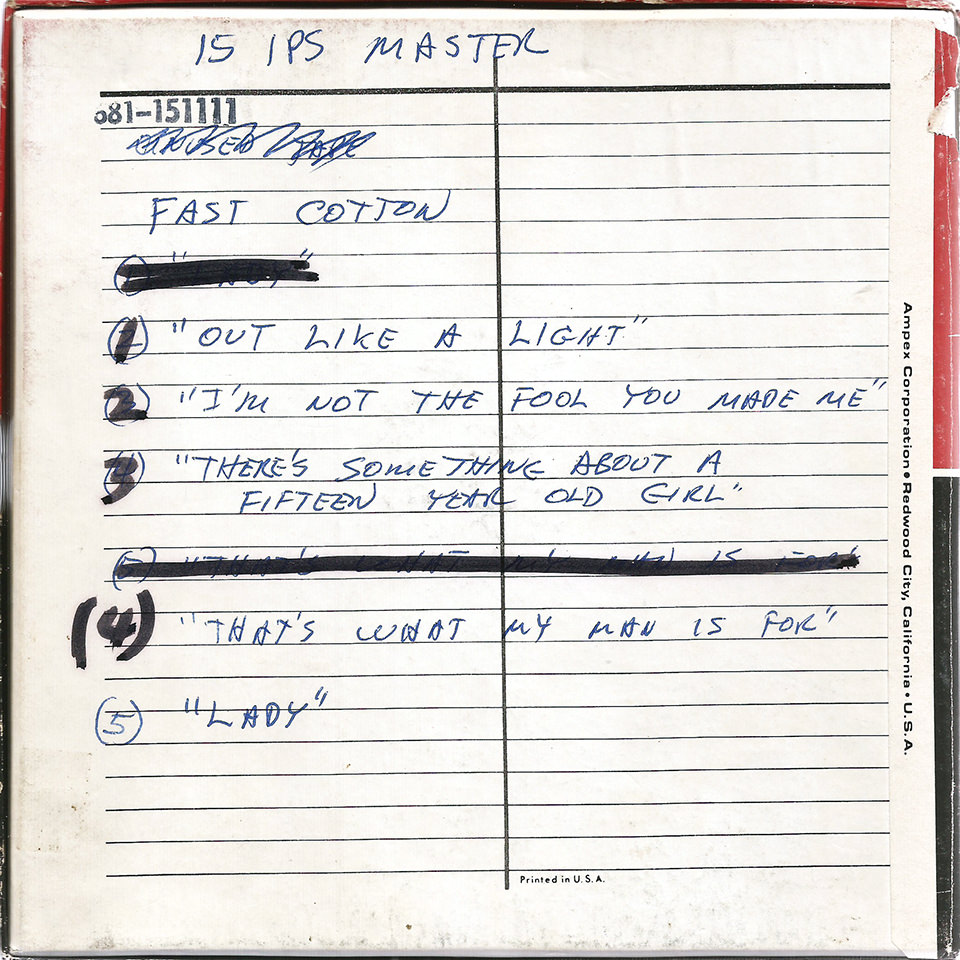 15 IPS MASTER
681-151111
FAST COTTON
(1) "OUT LIKE A LIGHT"
(2) "I'M NOT THE FOOL YOU MADE ME"
(3) "THERE'S SOMETHING ABOUT A
FIFTEEN YEAR OLD GIRL"
(5) "THAT'S WHAT MY MAN IS FOR"
(4) "THAT'S WHAT MY MAN IS FOR"
(5) "LADY"
Printed in U.S.A.
Ampex Corporation • Redwood City, California • U.S.A.